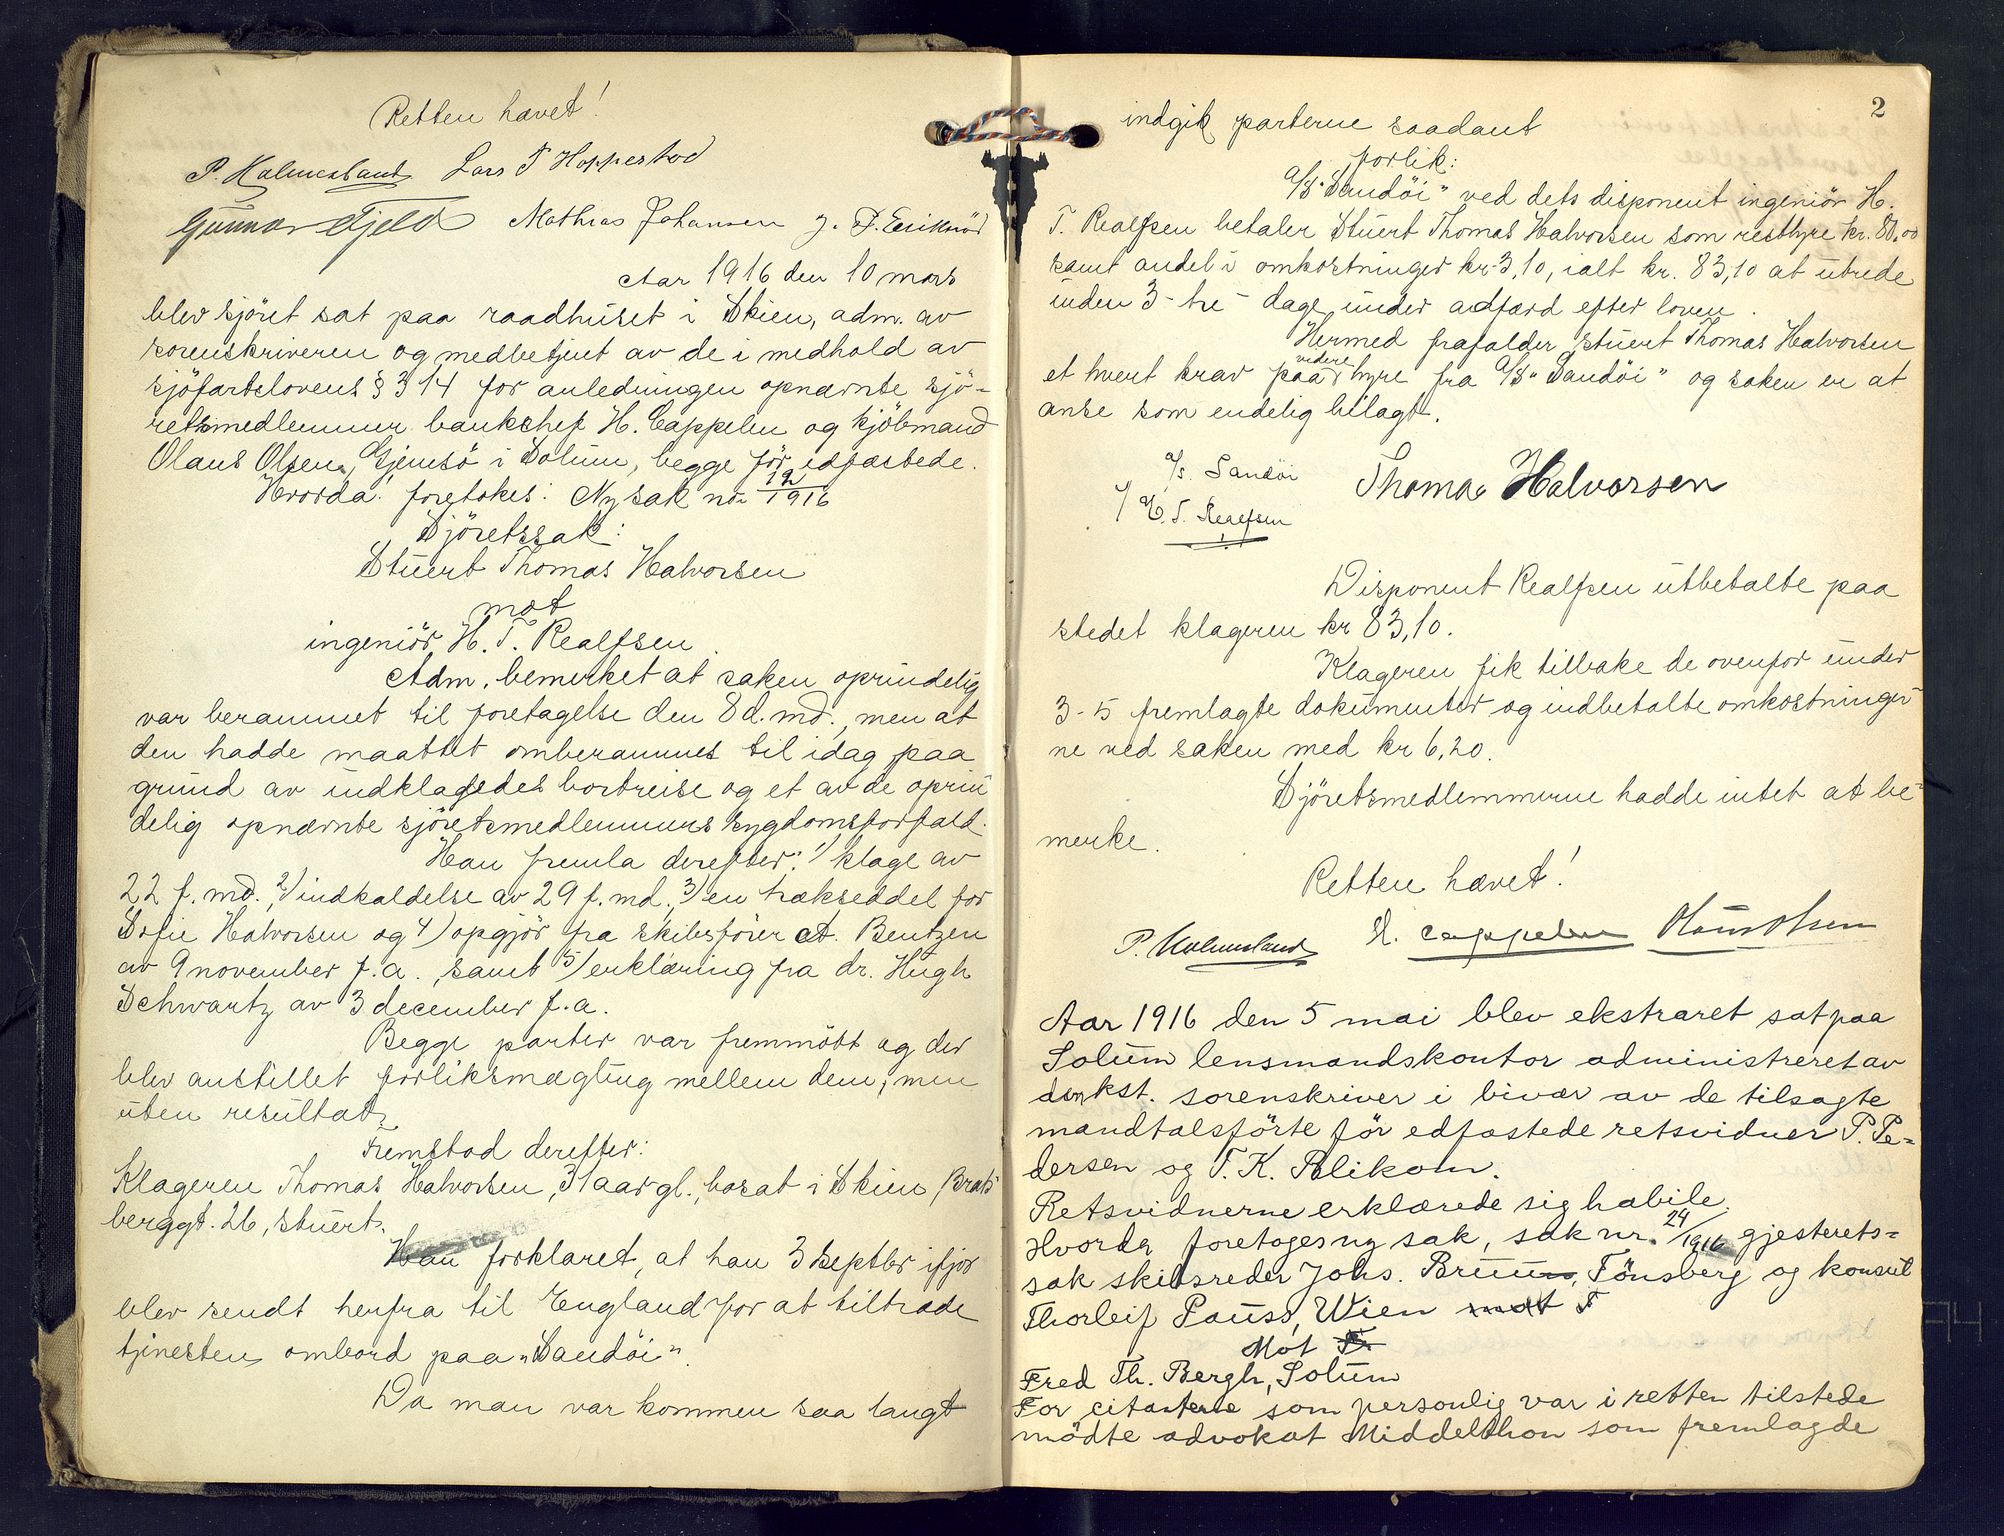 Retten hævet!
P. Holmesland Lars T Hoppestad
Gunnar Fjeld Mathias Johansen J. F. Eriksrød
Aar 1916 den 10 mars
blev sjöret sat paa raadhuset i Skien, adm. av
sorenskriveren og medbetjent av de i medhold av
sjöfartslovens § 314 for anledningen opnævnte sjö-
retsmedlemmer banksjef H. Cappelen og kjöbmand
Olaus Olsen, Gjemsö i Solum, begge för edfæstede.
Hvorda! foretokes: Ny sak no 12/1916
Sjöretssak:
Stuert Thomas Halvorsen
mot
ingeniör H. T. Realfsen.
Adm. bemerket at saken oprindelig
var berammet til foretagelse den 8 d. md., men at
den hadde maattet omberammes til idag paa
grund av indklagedes bortreise og et av de oprin
delig opnævnte sjöretsmedlemmers sygdomsforfald.
Han fremla derefter: 1) klage av
22 f. md., 2) indkaldelse av 29 f. md., 3) en trækseddel for
Sofie Halvorsen og 4) opgjör fra skibsförer A. Bentzen
av 9 november f. a., samt 5) erklæring fra dr. Hugh
Schwartz av 3 december f. a.
Begge parter var fremmött og der
blev anstillet forliksmægling mellem dem, men
uten resultat.
Fremstod derefter:
Klageren Thomas Halvorsen, 31 aar gl., bosat i Skien, Brats
berggt. 26, stuert.
Han forklaret, at han 3 septbr ifjor
blev sendt herfra til England for at tiltræde
tjenesten ombord paa "Sandöi".
Da man var kommen saa langt
2
indgik parterne saadant
forlik:
A/S "Sandöi" ved dets disponent ingeniör H.
T. Realfsen betaler Stuert Thomas Halvorsen som resthyre kr. 80.00
samt andel i omkostninger kr. 3,10, ialt kr. 83,10 at utrede
inden 3 - tre - dage under adfærd efter loven.
Hermed frafalder stuert Thomas Halvorsen
et hvert krav paa videre hyre fra A/S "Sandöi" og saken er at
anse som endelig bilagt.
A/s Sandöi Thomas Halvorsen
H. T. Realfsen
Disponent Realfsen utbetalte paa
stedet klageren kr 83,10.
Klageren fik tilbake de ovenfor under
3-5 fremlagte dokumenter og indbetalte omkostninger
ne ved saken med kr 6,20.
Sjöretsmedlemmerne hadde intet at be-
merke.
Retten hævet!
P. Holmesland H. Cappelen Olaus Olsen
Aar 1916 den 5 mai blev ekstraret sat paa
Solum lensmandskontor administreret av
den kst. sorenskriver i bivær av de tilsagte
mandtalsförte för edfæstede retsvidner P. Pe-
dersen og T. K. Blikom.
Retsvidnerne erklærede sig habile.
Hvorda foretoges ny sak, sak nr. 24/1916 gjesterets-
sak skibsreder Johs. Bruun, Tönsberg og konsul
Thorleif Pauss, Wien mot F
Mot F.
Fred Th. Bergh, Solum
For citanterne som personlig var i retten tilstede
mödte advokat Middelthon som fremlagde